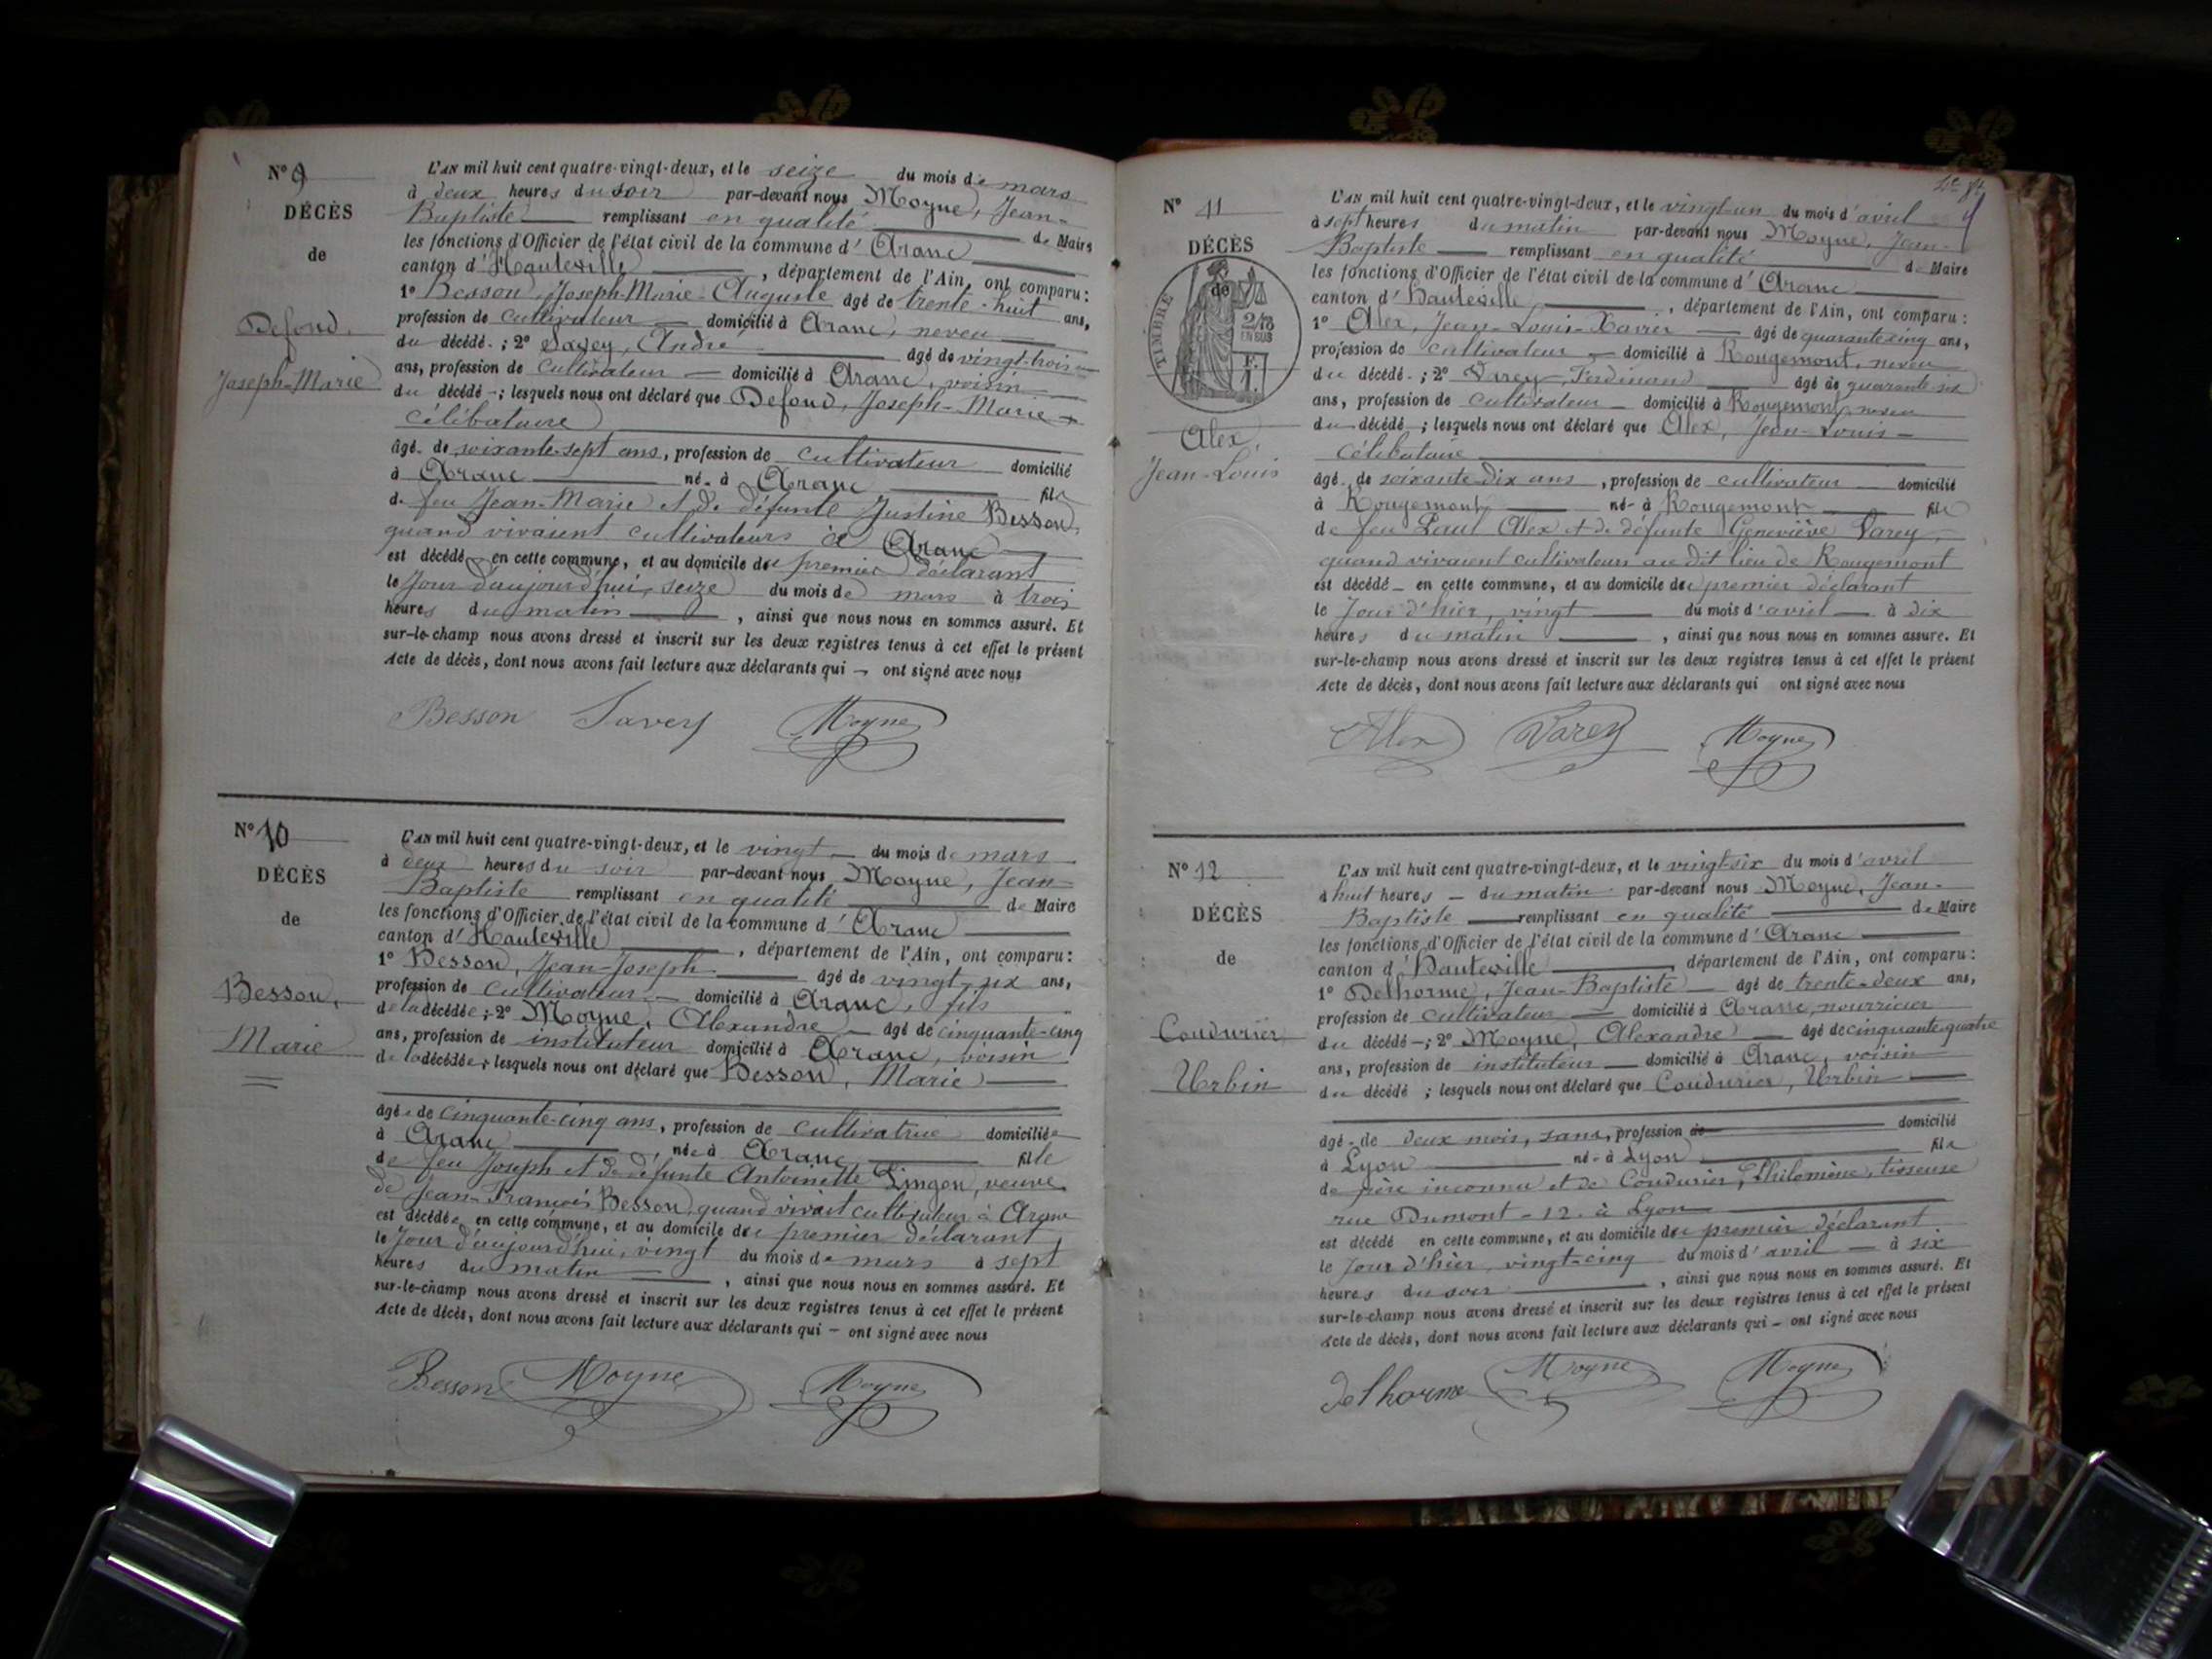 N° 9
DÉCÈS
de
Defond,
Joseph-Marie
L'AN mil huit cent quatre-vingt-deux, et le seize du mois de mars
à deux heures du soir par-devant nous Moyne, Jean-
Baptiste remplissant en qualité de Maire
les fonctions d'Officier de l'état civil de la commune d'Aranc
canton d'Hauteville, département de l'Ain, ont comparu :
1° Besson, Joseph-Marie-Auguste âgé de trente-huit ans,
profession de cultivateur domicilié à Aranc, neveu
du décédé ; 2° Savey, André âgé de vingt-trois
ans, profession de cultivateur domicilié à Aranc, voisin
du décédé ; lesquels nous ont déclaré que Defond, Joseph-Marie
célibataire
âgé de soixante-sept ans, profession de cultivateur domicilié
à Aranc né à Aranc fils
de feu Jean-Marie et de défunte Justine Besson,
quand vivaient cultivateurs à Aranc
est décédé en cette commune, et au domicile du premier déclarant
le jour d'aujourd'hui, seize du mois de mars à trois
heures du matin, ainsi que nous nous en sommes assuré. Et
sur-le-champ nous avons dressé et inscrit sur les deux registres tenus à cet effet le présent
Acte de décès, dont nous avons fait lecture aux déclarants qui ont signé avec nous
Besson Savey Moyne
N° 10
DÉCÈS
de
Besson,
Marie
L'AN mil huit cent quatre-vingt-deux, et le vingt du mois de mars
à deux heures du soir par-devant nous Moyne, Jean-
Baptiste remplissant en qualité de Maire
les fonctions d'Officier de l'état civil de la commune d'Aranc
canton d'Hauteville, département de l'Ain, ont comparu :
1° Besson, Jean-Joseph âgé de vingt-six ans,
profession de cultivateur domicilié à Aranc, fils
de la décédée ; 2° Moyne, Alexandre âgé de cinquante-cinq
ans, profession de instituteur domicilié à Aranc, voisin
de la décédée ; lesquels nous ont déclaré que Besson, Marie
âgée de cinquante-cinq ans, profession de cultivatrice domiciliée
à Aranc née à Aranc fille
de feu Joseph et de défunte Antoinette Lingon, veuve
de Jean-François Besson, quand vivait cultivateur à Aranc
est décédée en cette commune, et au domicile du premier déclarant
le jour d'aujourd'hui, vingt du mois de mars à sept
heures du matin, ainsi que nous nous en sommes assuré. Et
sur-le-champ nous avons dressé et inscrit sur les deux registres tenus à cet effet le présent
Acte de décès, dont nous avons fait lecture aux déclarants qui ont signé avec nous
Besson Moyne Moyne
N° 11
DÉCÈS
de
TIMBRE
2/10
EN SUS
Alex,
Jean-Louis
L'AN mil huit cent quatre-vingt-deux, et le vingt-un du mois d'avril
à sept heures du matin par-devant nous Moyne, Jean-
Baptiste remplissant en qualité de Maire
les fonctions d'Officier de l'état civil de la commune d'Aranc
canton d'Hauteville, département de l'Ain, ont comparu :
1° Alex, Jean-Louis-Xavier âgé de quarante-cinq ans,
profession de cultivateur domicilié à Rougemont, neveu
du décédé ; 2° Varey, Ferdinand âgé de quarante-six
ans, profession de cultivateur domicilié à Rougemont, neveu
du décédé ; lesquels nous ont déclaré que Alex, Jean-Louis
célibataire
âgé de soixante-dix ans, profession de cultivateur domicilié
à Rougemont né à Rougemont fils
de feu Paul Alex et de défunte Geneviève Varey,
quand vivaient cultivateurs au dit lieu de Rougemont
est décédé en cette commune, et au domicile du premier déclarant
le jour d'hier, vingt du mois d'avril à dix
heures du matin, ainsi que nous nous en sommes assuré. Et
sur-le-champ nous avons dressé et inscrit sur les deux registres tenus à cet effet le présent
Acte de décès, dont nous avons fait lecture aux déclarants qui ont signé avec nous
Alex Varey Moyne
N° 12
DÉCÈS
de
Coudurier,
Urbin
L'AN mil huit cent quatre-vingt-deux, et le vingt-six du mois d'avril
à huit heures du matin par-devant nous Moyne, Jean-
Baptiste remplissant en qualité de Maire
les fonctions d'Officier de l'état civil de la commune d'Aranc
canton d'Hauteville département de l'Ain, ont comparu :
1° Delhorme, Jean-Baptiste âgé de trente-deux ans,
profession de cultivateur domicilié à Aranc, nourricier
du décédé ; 2° Moyne, Alexandre âgé de cinquante-quatre
ans, profession de instituteur domicilié à Aranc, voisin
du décédé ; lesquels nous ont déclaré que Coudurier, Urbin
âgé de deux mois, sans, profession de domicilié
à Lyon né à Lyon fils
de père inconnu et de Coudurier, Philomène, tisseuse
rue Dumont - 12. à Lyon
est décédé en cette commune, et au domicile du premier déclarant
le jour d'hier, vingt-cinq du mois d'avril à six
heures du soir, ainsi que nous nous en sommes assuré. Et
sur-le-champ nous avons dressé et inscrit sur les deux registres tenus à cet effet le présent
Acte de décès, dont nous avons fait lecture aux déclarants qui ont signé avec nous
Delhorme Moyne Moyne